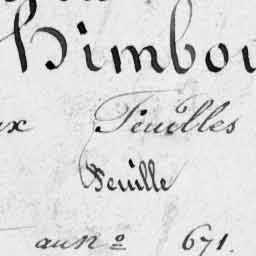 himbou
ux Feuilles
Feuille
au nº 671.